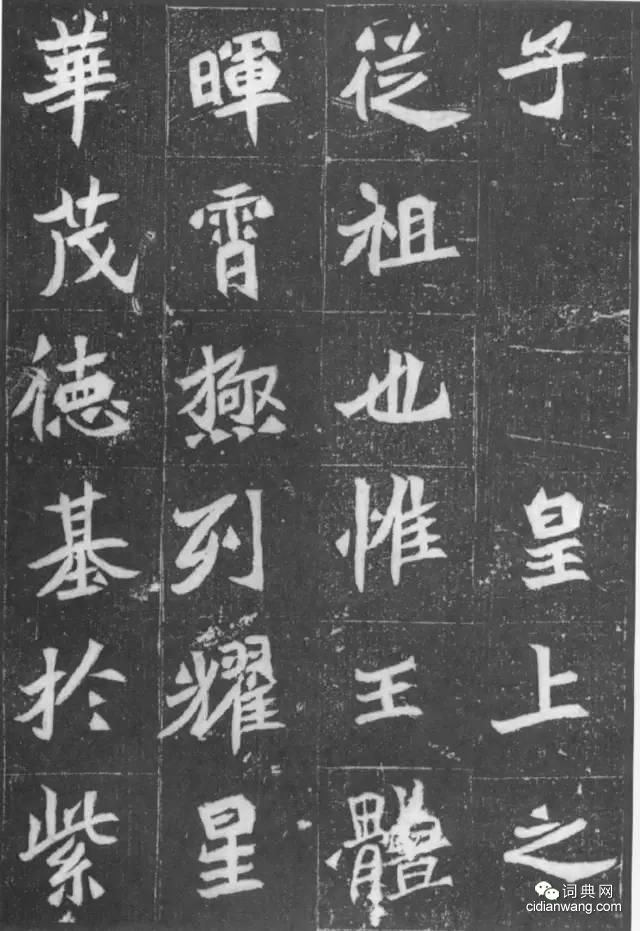 子皇上之
從祖也惟王體
暉霄極列耀星
華茂德基於紫
词典网
cidianwang.com